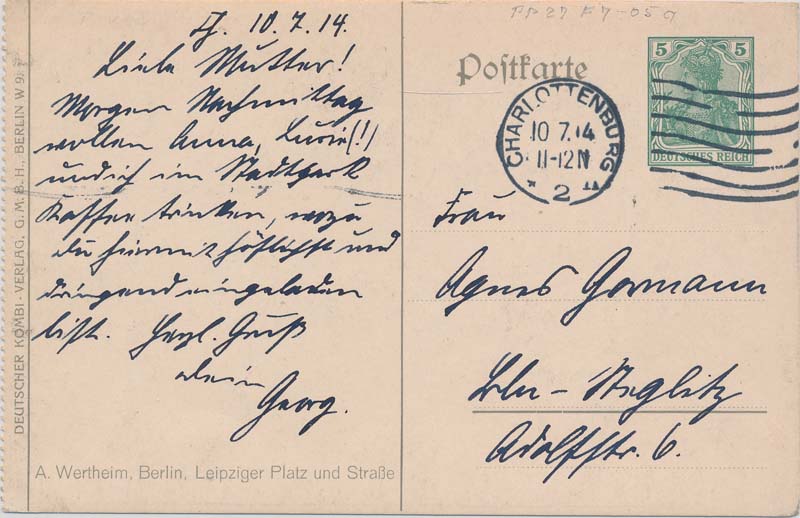 10.7.14.
Liebe Mutter!
Morgen Nachmittag
wollen Anna, Lucie (!)
und ich im Stadtpark
Kaffee trinken, wozu
du hiermit höflichst und
dringend eingeladen
bist. Herzl. Gruß
dein
Georg.
A. Wertheim, Berlin, Leipziger Platz und Straße
DEUTSCHER KOMBI-VERLAG, G. M. B. H., BERLIN W 9.
PP27 F7-05
Postkarte
5 5
DEUTSCHES REICH
CHARLOTTENBURG
10 7.14
11-12 N
* 2
Frau
Agnes Gormann
Bln-Steglitz
Adolfstr. 6.